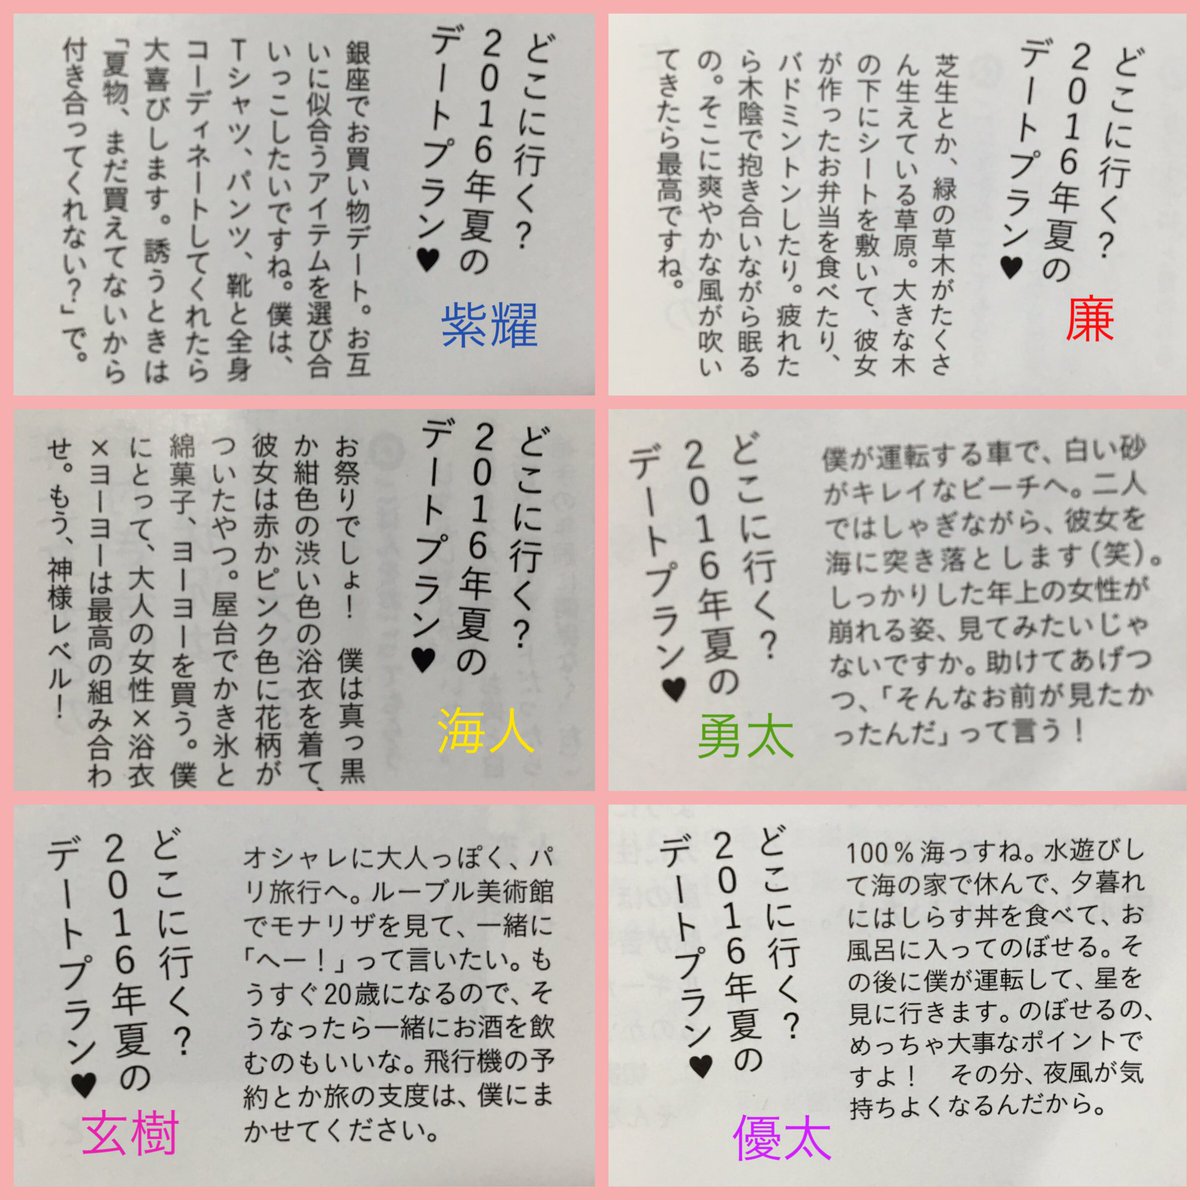 どこに行く?
2016年夏の
デートプラン♥
銀座でお買い物デート。お互
いに似合うアイテムを選び合
いっこしたいですね。僕は、
Tシャツ、パンツ、靴と全身
コーディネートしてくれたら
大喜びします。誘うときは
「夏物、まだ買えてないから
付き合ってくれない?」で。
紫耀
どこに行く?
2016年夏の
デートプラン♥
芝生とか、緑の草木がたくさ
ん生えている草原。大きな木
の下にシートを敷いて、彼女
が作ったお弁当を食べたり、
バドミントンしたり。疲れた
ら木陰で抱き合いながら眠る
の。そこに爽やかな風が吹い
てきたら最高ですね。
廉
どこに行く?
2016年夏の
デートプラン♥
お祭りでしょ! 僕は真っ黒
か紺色の渋い色の浴衣を着て、
彼女は赤かピンク色に花柄が
ついたやつ。屋台でかき氷と
綿菓子、ヨーヨーを買う。僕
にとって、大人の女性×浴衣
×ヨーヨーは最高の組み合わ
せ。もう、神様レベル!
海人
どこに行く?
2016年夏の
デートプラン♥
僕が運転する車で、白い砂
がキレイなビーチへ。二人
ではしゃぎながら、彼女を
海に突き落とします(笑)。
しっかりした年上の女性が
崩れる姿、見てみたいじゃ
ないですか。助けてあげつ
つ、「そんなお前が見たか
ったんだ」って言う!
勇太
どこに行く?
2016年夏の
デートプラン♥
オシャレに大人っぽく、パ
リ旅行へ。ルーブル美術館
でモナリザを見て、一緒に
「へー!」って言いたい。も
うすぐ20歳になるので、そ
うなったら一緒にお酒を飲
むのもいいな。飛行機の予
約とか旅の支度は、僕にま
かせてください。
玄樹
どこに行く?
2016年夏の
デートプラン♥
100%海っすね。水遊びし
て海の家で休んで、夕暮れ
にはしらす丼を食べて、お
風呂に入ってのぼせる。そ
の後に僕が運転して、星を
見に行きます。のぼせるの、
めっちゃ大事なポイントで
すよ! その分、夜風が気
持ちよくなるんだから。
優太